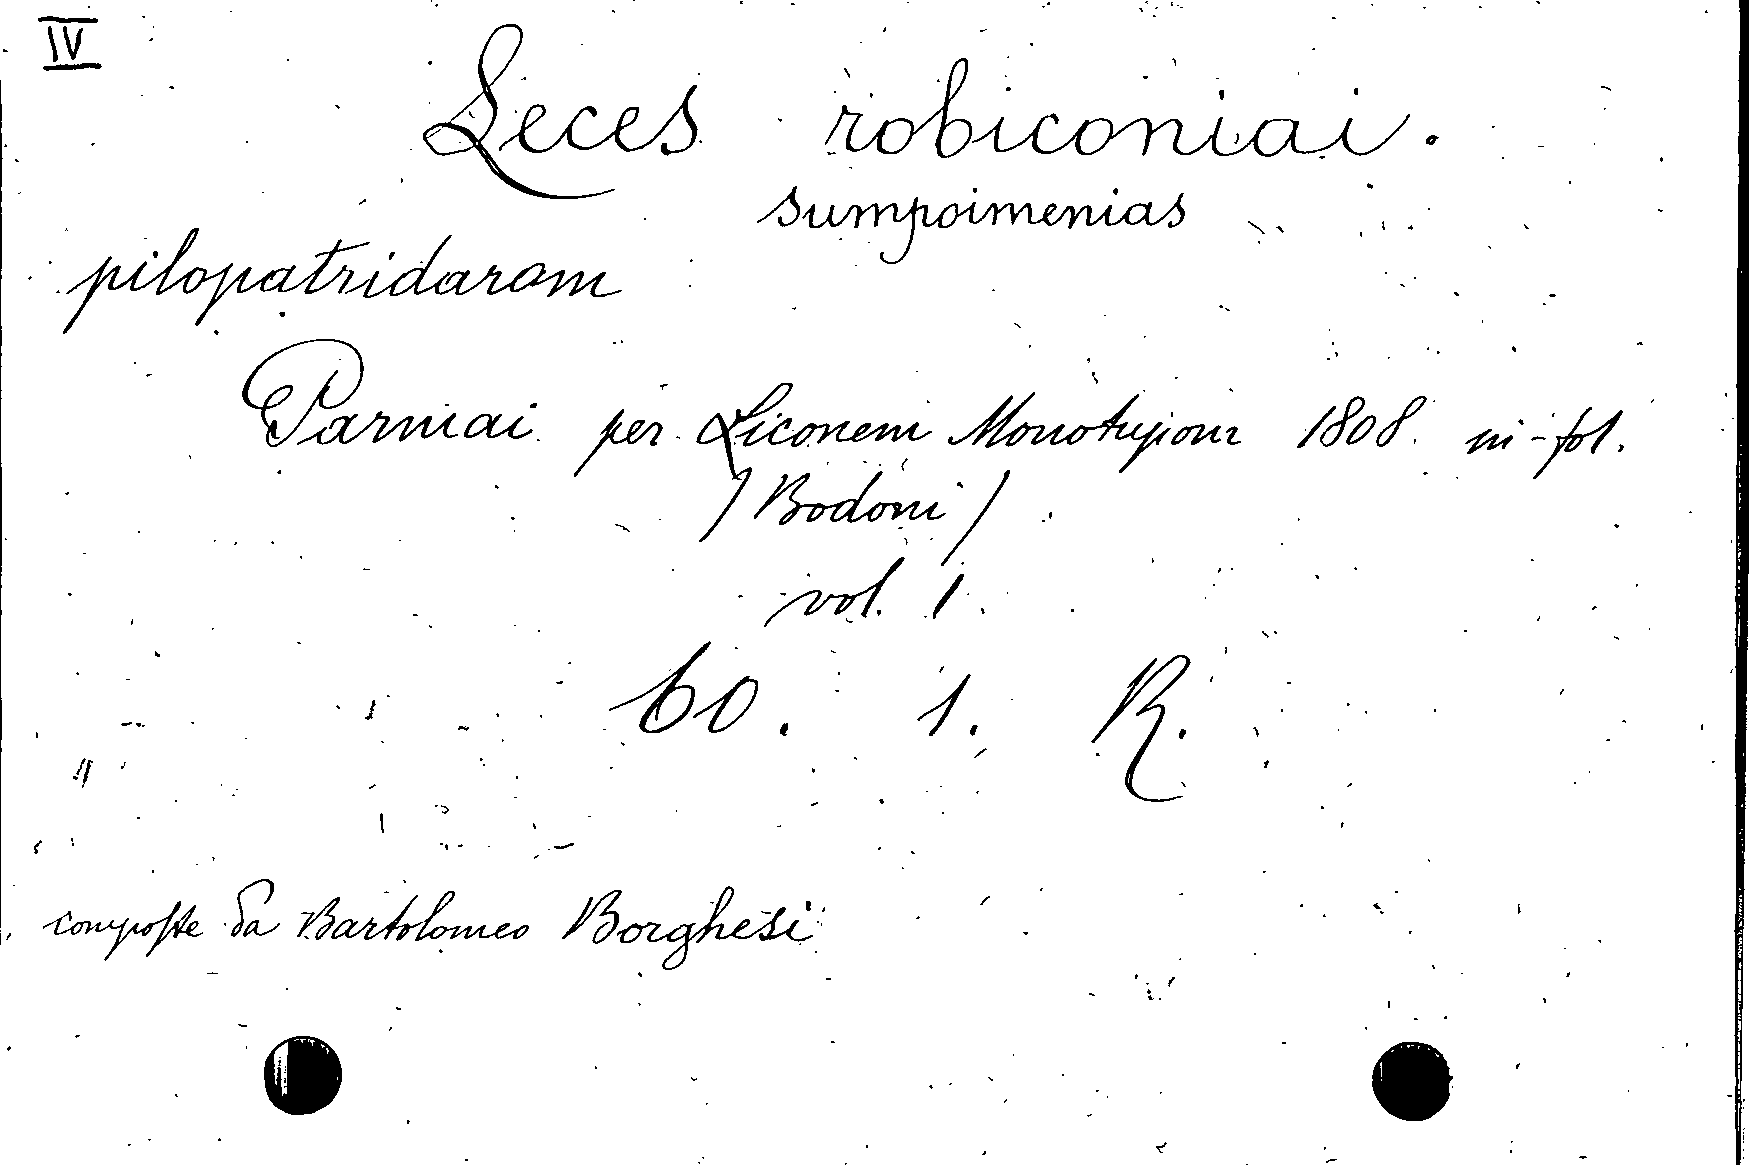 IV
Leces robiconiai.
sumpoimenias
pilopatridarom
Parmai per Liconem Monotupiom 1808. in-fol.
/Bodoni/
vol. 1.
60. 1. R.
composte da Bartolomeo Borghesi